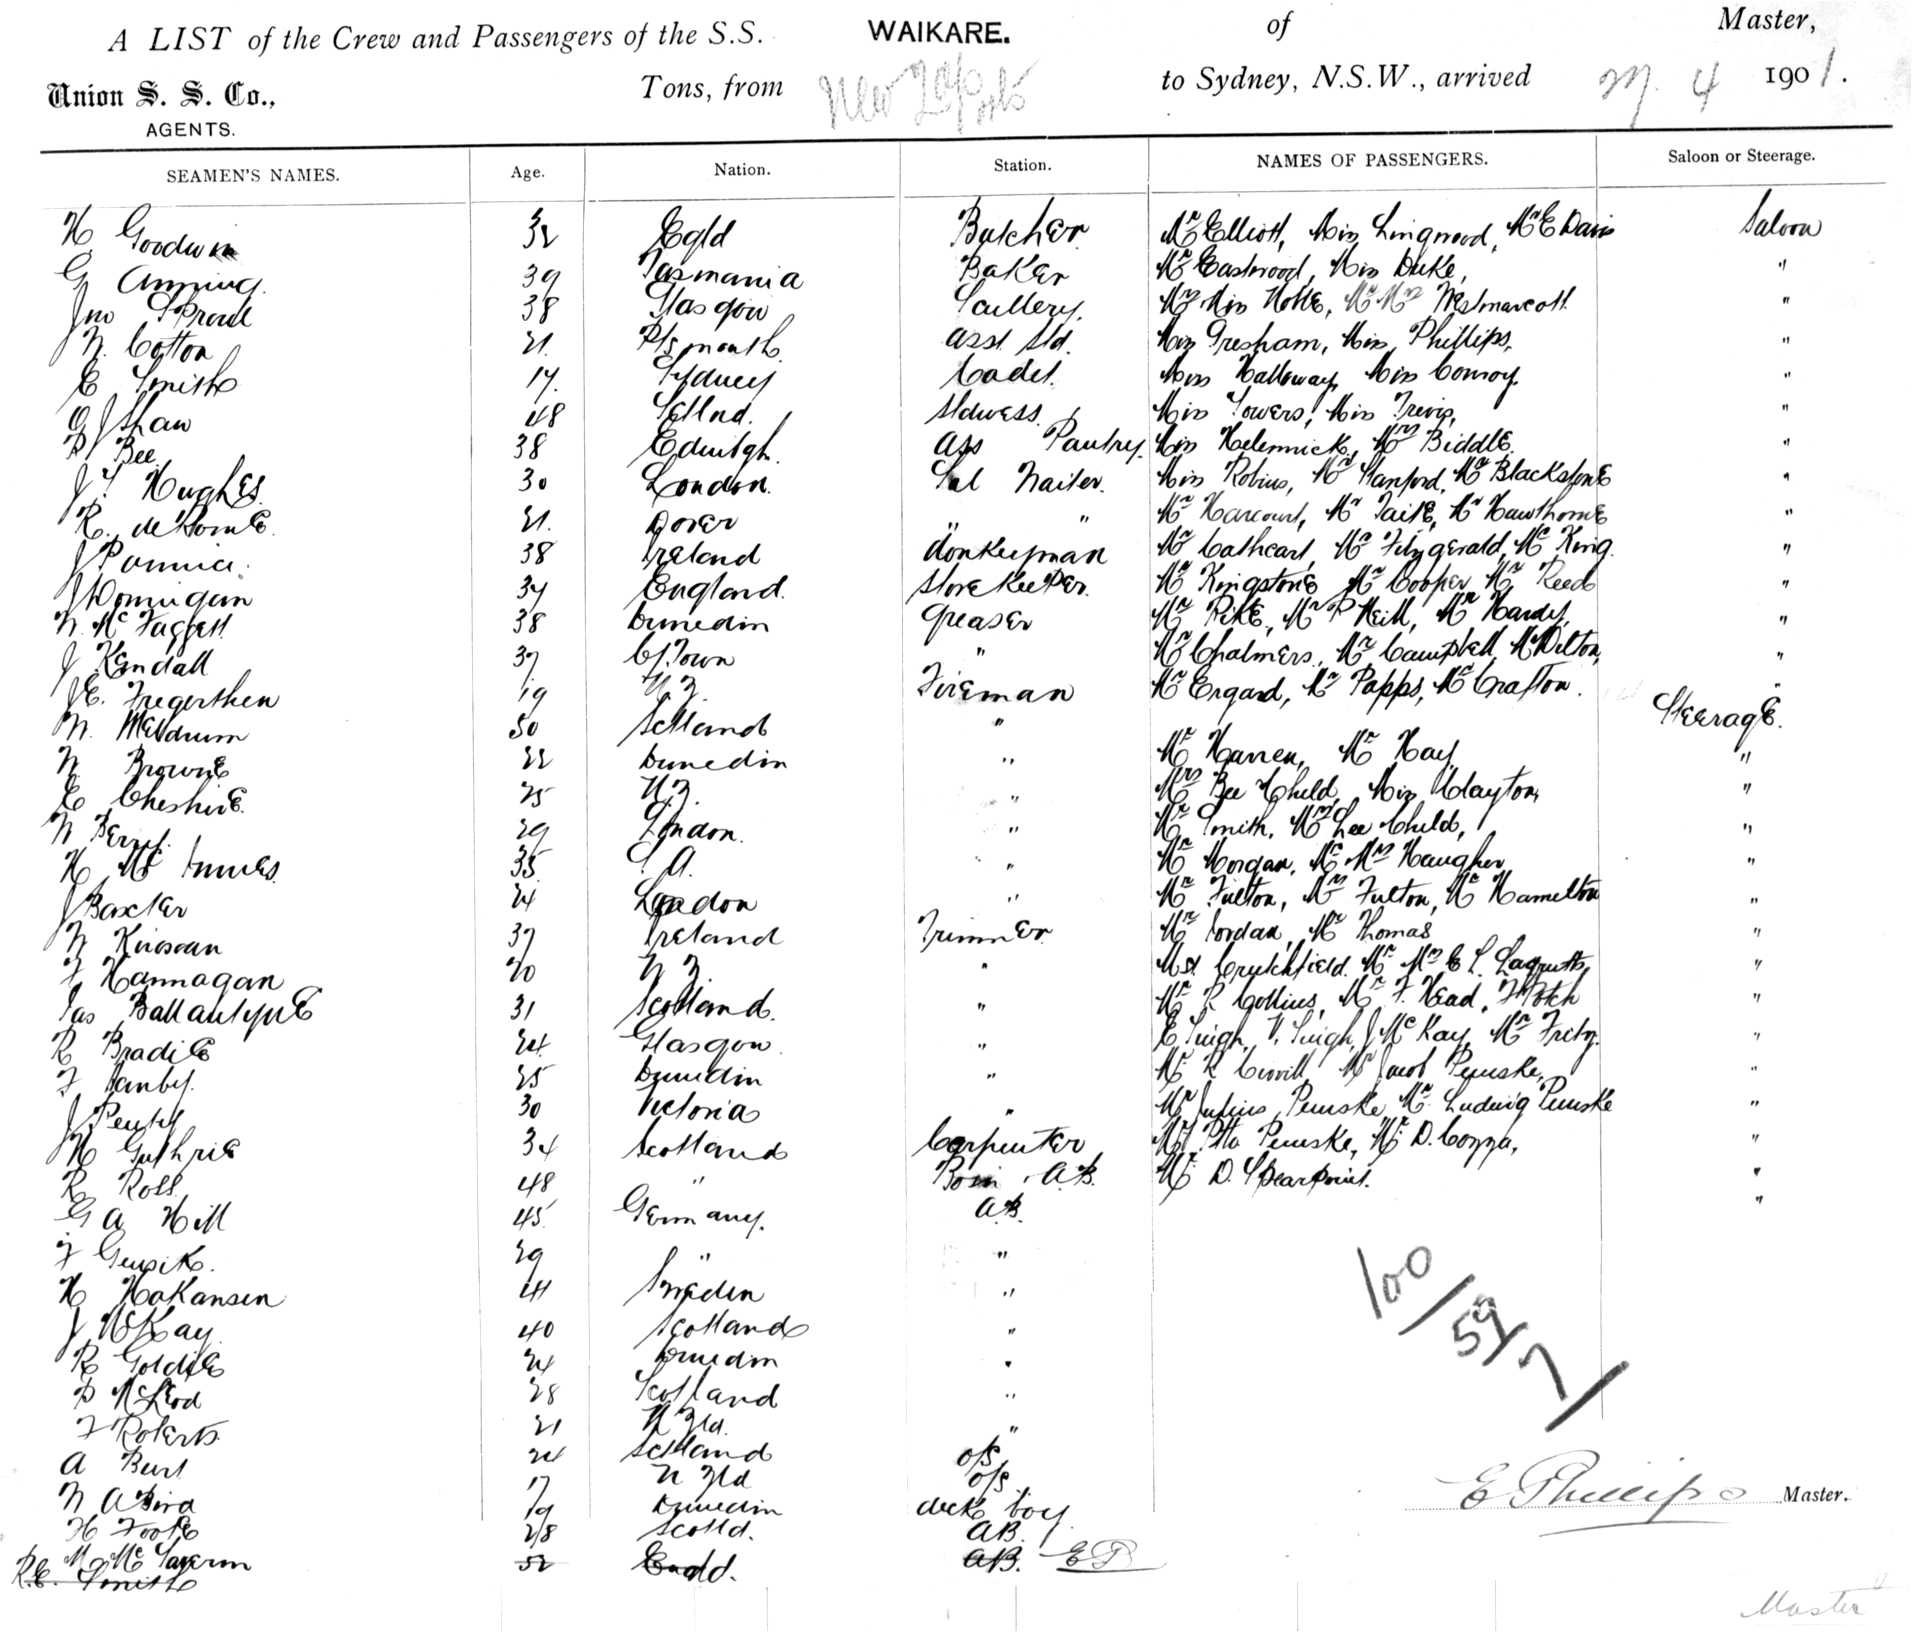 A LIST of the Crew and Passengers of the S.S. WAIKARE. of Master,
Union S. S. Co., Tons, from New to Sydney, N.S.W., arrived 4 1901.
AGENTS.
SEAMEN'S NAMES. Age. Nation. Station. NAMES OF PASSENGERS. Saloon or Steerage.
H Goodwin 32 Egld Butcher Mr Elliott, Miss Lingwood, Mr E Davis Saloon
G Anning 39 Tasmania Baker Mr Eastwood, Miss Duke, "
Jno Sproul 38 Glasgow Scullery. Mrs Miss Hotte, Mr Mrs Westmarcott "
W. Cotton 21. Plymouth Asst Std. Miss Gresham, Miss Phillips, "
E Smith 17. Sydney Cadet. Miss Halloway, Miss Conroy. "
G J Shaw 48 Stdwess. Miss Towers, Miss Trevis, "
D Bee 38 Edinbgh. Ass Pantry. Miss Mrs Biddle. "
J T Hughes 30 London. Sal Waiter. Miss Robins, Mr Stanford, Mr Blackstone "
R. 21. Dover " " Mr Harcourt, Mr Taite, Mr Hawthorne "
J 38 Ireland donkeyman Mr Cathcart, Mr Fitzgerald, Mr King. "
J Dornigan 34 England. Storekeeper. Mr Kingstone Mr Cooper, Mr Reed "
W. Mc Taggett 38 Dunedin Greaser Mr Pike, Mr P Neill, Mr Hardy, "
J Kendall 37 C/Town " Mr Chalmers, Mr Campbell, Mr Dilton, "
J E. Tregerthen 19 N. Z. Fireman Mr Ergard, Mr Papps, Mr Crafton. "
W. Meldrum 50 Scttland " Steerage.
W Browne 22 Dunedin " Mr Warren, Mr Hay "
E Cheshire 25 N. Z. " Mrs Bee Child, Miss Clayton, "
W 29 London. " Mr Smith, Mrs Lee Child, "
H Mc Innes 35 S. A. " Mr Morgan, Mr Mrs Waugher "
J Baxter 24 London " Mr Fulton, Mrs Fulton, Mr Hamelton "
W Kirowan 37 Ireland Trimmer Mr Jordan, Mr Thomas "
T Hannagan 20 N Z. " Mr Crutchfield. Mr Mrs E L. "
Jas Ballantyne 31 Scotland. " Mr R Collins, Mr F. Head, "
R Bradie 24 Glasgow " E Singh, V. Singh, J McKay, Mr Fritz. "
F Hanby. 25 Dunedin " Mr R Mr Jacob Penske, "
J 30 Victoria " Mr Julius Penske, Mr Ludwig Penske "
H Guthrie 34 Scotland Carpenter Otto Penske, Mr D. Cozza, "
R Ross 48 " Bosn A.B. Mr D. Spearpoint. "
G A Hill 45 Germany. A.B. "
F Gensik. 29 " "
H Hakansen 41 Sweden "
J McKay 40 Scotland "
R Goldie 24 Dunedin "
D McLeod 28 Scotland "
F Roberts 21 N Zld. "
A Burt 24 Scttland o/s
W A Bird 17 N Zld o/s
H Foote 19 Dunedin deck boy
M Mc 28 Scotld. AB
R.E. Smith 52 AB. EP
100/59/7
E Phillips Master.
Master